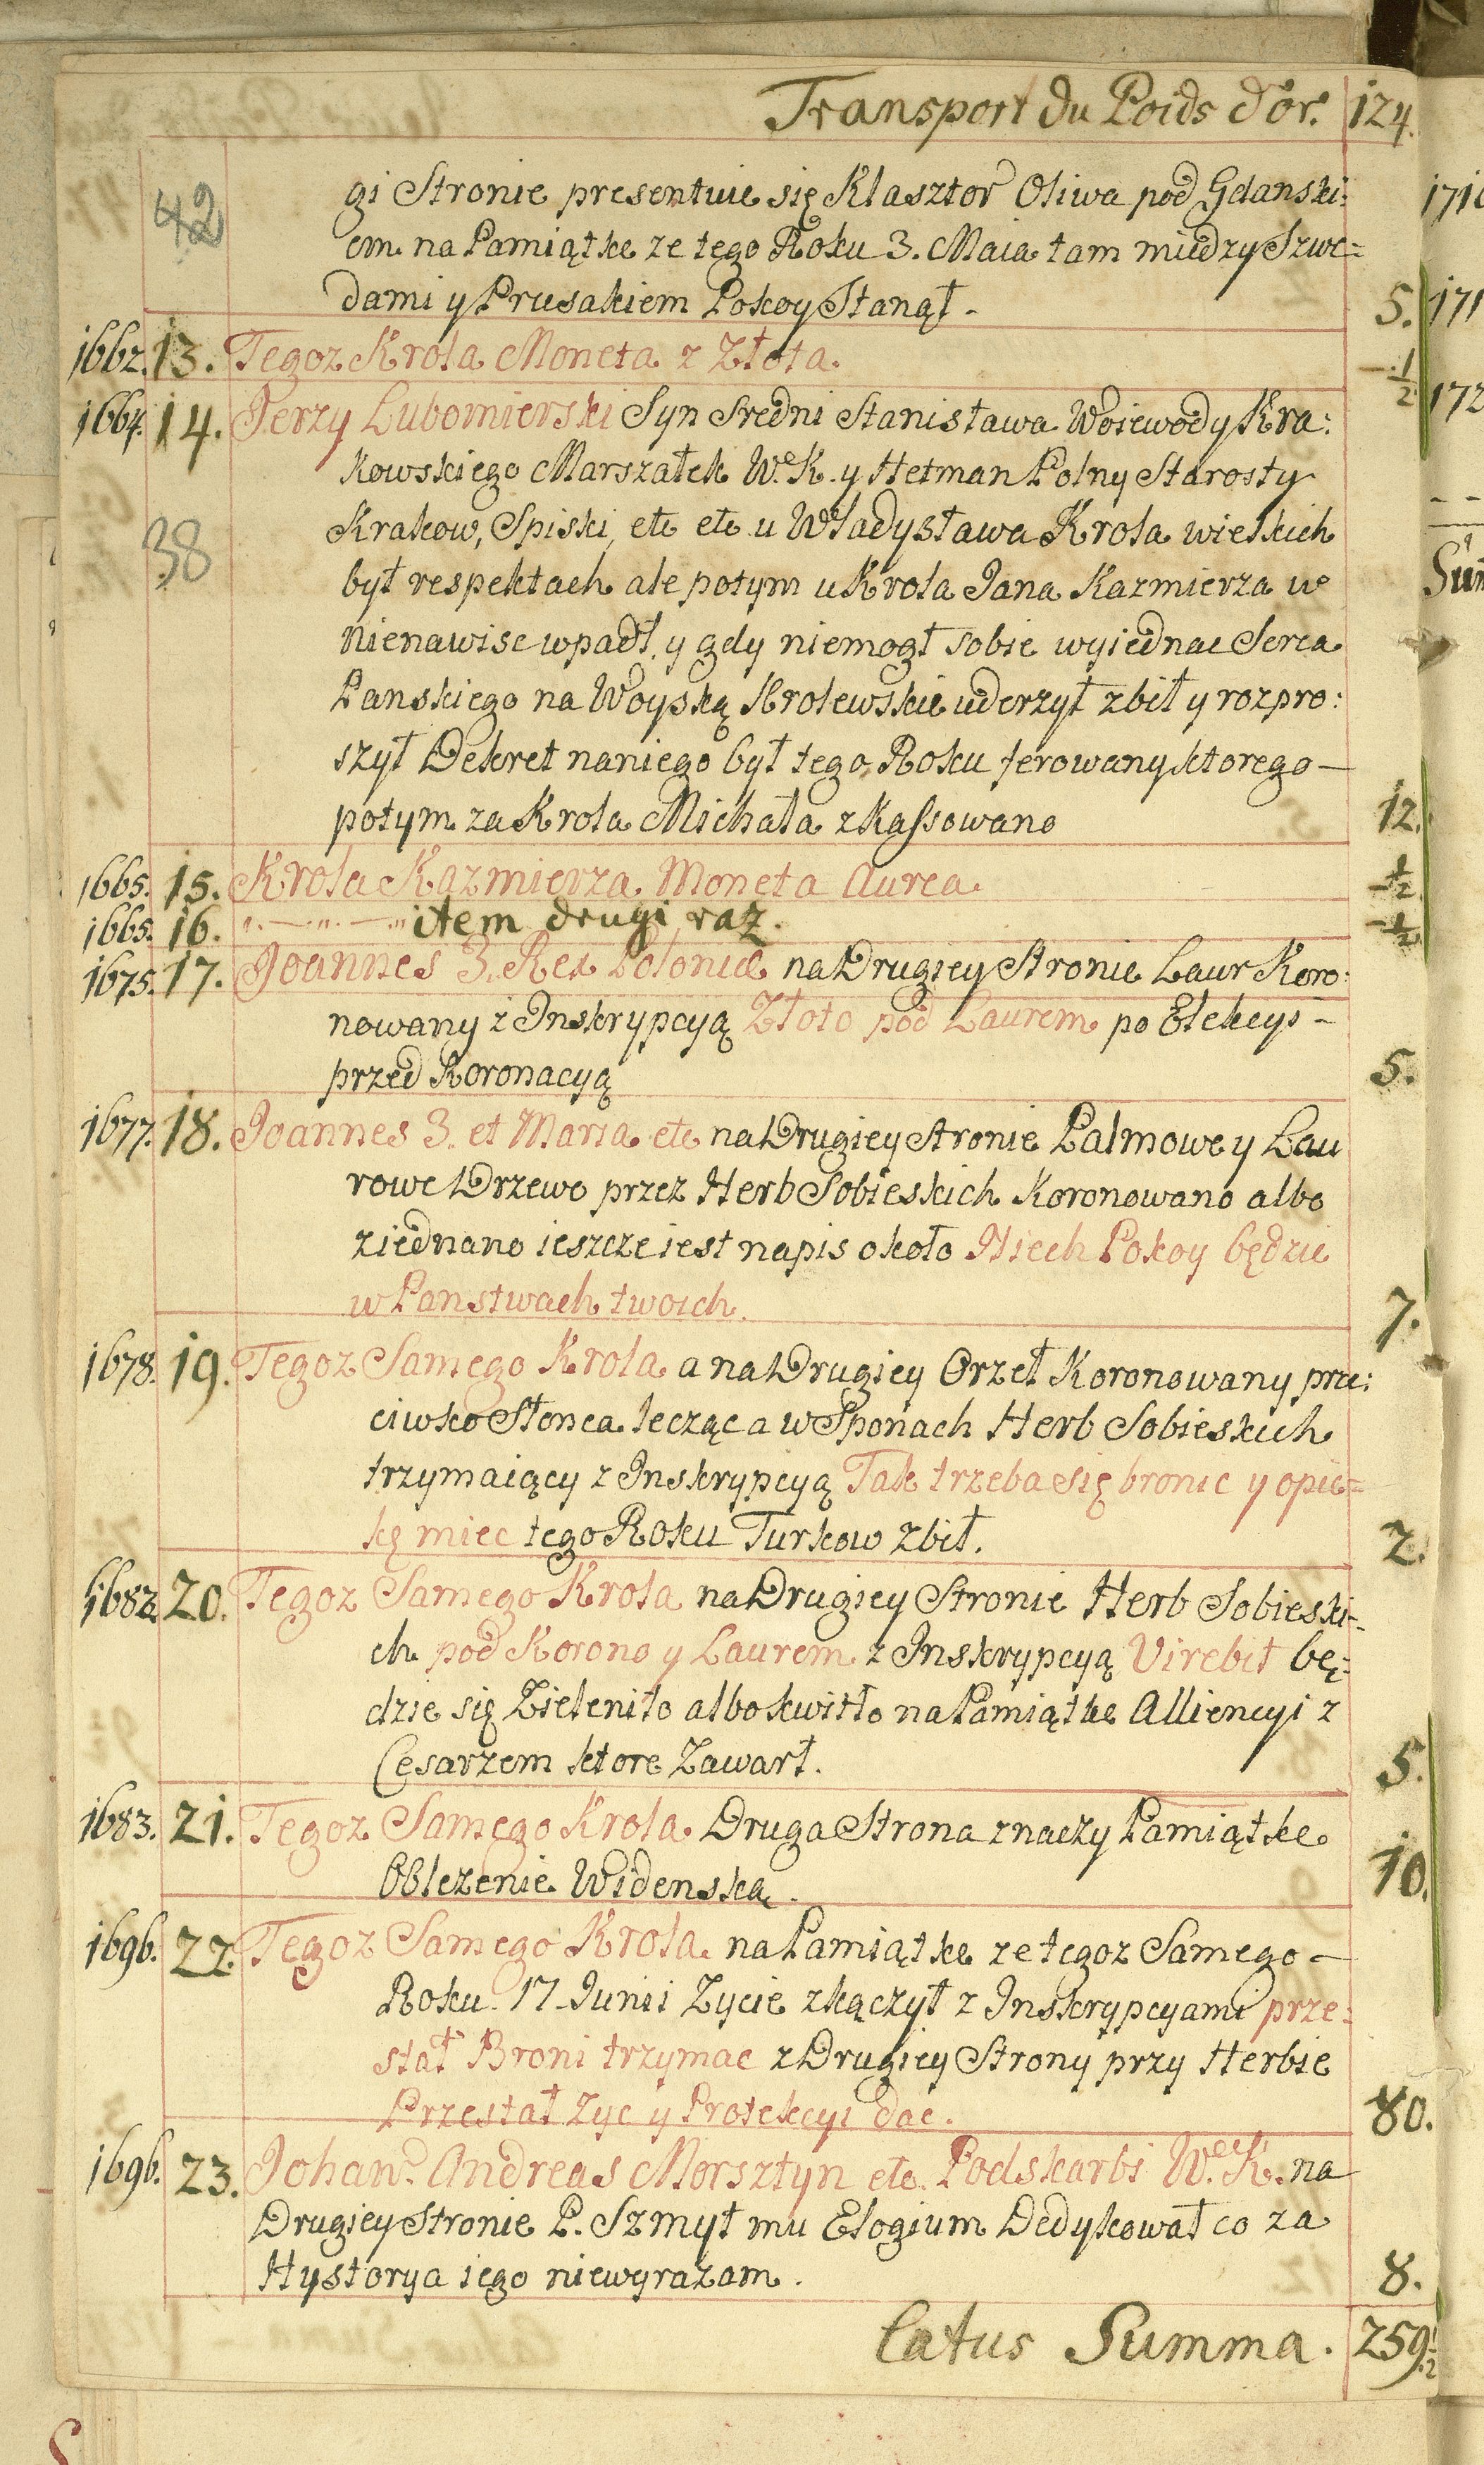 Transport du Poids d'or. 124.
42 gi Stronie presentuie się Klasztor Oliwa pod Gdanski:
em na Pamiątke ze tego Roku 3. Maia tam miedzy Szwe=
dami y Prusakiem Pokoy Stanął. 5.
1662. 13. Tegoz Krola Moneta z Złota. -. 1/2
1664. 14. Jerzy Lubomierski Syn Sredni Stanisława Woiewody Kra:
kowskiego Marszałek W.e K. y Hetman Polny Starosty
38 Krakow, Spiski, etc etc u Władysława Krola wielkich
był respektach ale potym u Krola Jana Kazmierza w
nienawisc wpadł, y gdy niemogł sobie wyiednac Serca
Panskiego na Woyską Krolewskie uderzył zbił y rozpro:
szył Dekret naniego był tego Roku ferowany ktorego –
potym za Krola Michała zkassowano 12.
1665. 15. Krola Kazmierza Moneta Aurea. - 1/2
1665. 16. „. — „. — „ item drugi raz. - 1/2
1675. 17. Joannes 3. Rex Poloniæ na Drugiey Stronie Laur Koro:
nowany z Inskrypcyą Złoto pod Laurem po Elekcyi –
przed Koronacyą 5.
1677. 18. Joannes 3. et Maria etc na Drugiey Stronie Palmowe y Lau
rowe Drzewo przez Herb Sobieskich Koronowano albo
ziednano ieszcze iest napis około Niech Pokoy będzie
w Panstwach twoich. 7.
1678. 19. Tegoz Samego Krola a na Drugiey Orzeł Koronowany prze:
ciwko Słonca lecząc a w Sponach Herb Sobieskich
trzymaiący z Inskrypcyą Tak trzeba się bronic y opie=
kę miec tego Roku Turkow zbił. 2.
1682. 20. Tegoz Samego Krola na Drugiey Stronie Herb Sobieski-
ch pod Korono y Laurem z Inskrypcyą Virebit bę:
dzie się Zieleniło albo kwitło na Pamiątke Alliencyi z
Cesarzem ktore Zawarł. 5.
1683. 21. Tegoz Samego Krola Druga Strona znaczy Pamiątke
Oblezenie Widenską. 10.
1696. 22. Tegoz Samego Krola na Pamiątke ze tegoz Samego –
Roku 17. Junii Zycie zkączył z Inskrypcyami prze:
stał Broni trzymac z Drugiey Strony przy Herbie
Przestał Zyc y Protekcyi dac. 80.
1696. 23. Johan. Andreas Morsztyn etc. Podskarbi W.e K. na
Drugiey Stronie P. Szmyt mu Elogium Dedykował co za
Hystorya iego niewyrazam. 8.
Latus Summa. 259 1/2